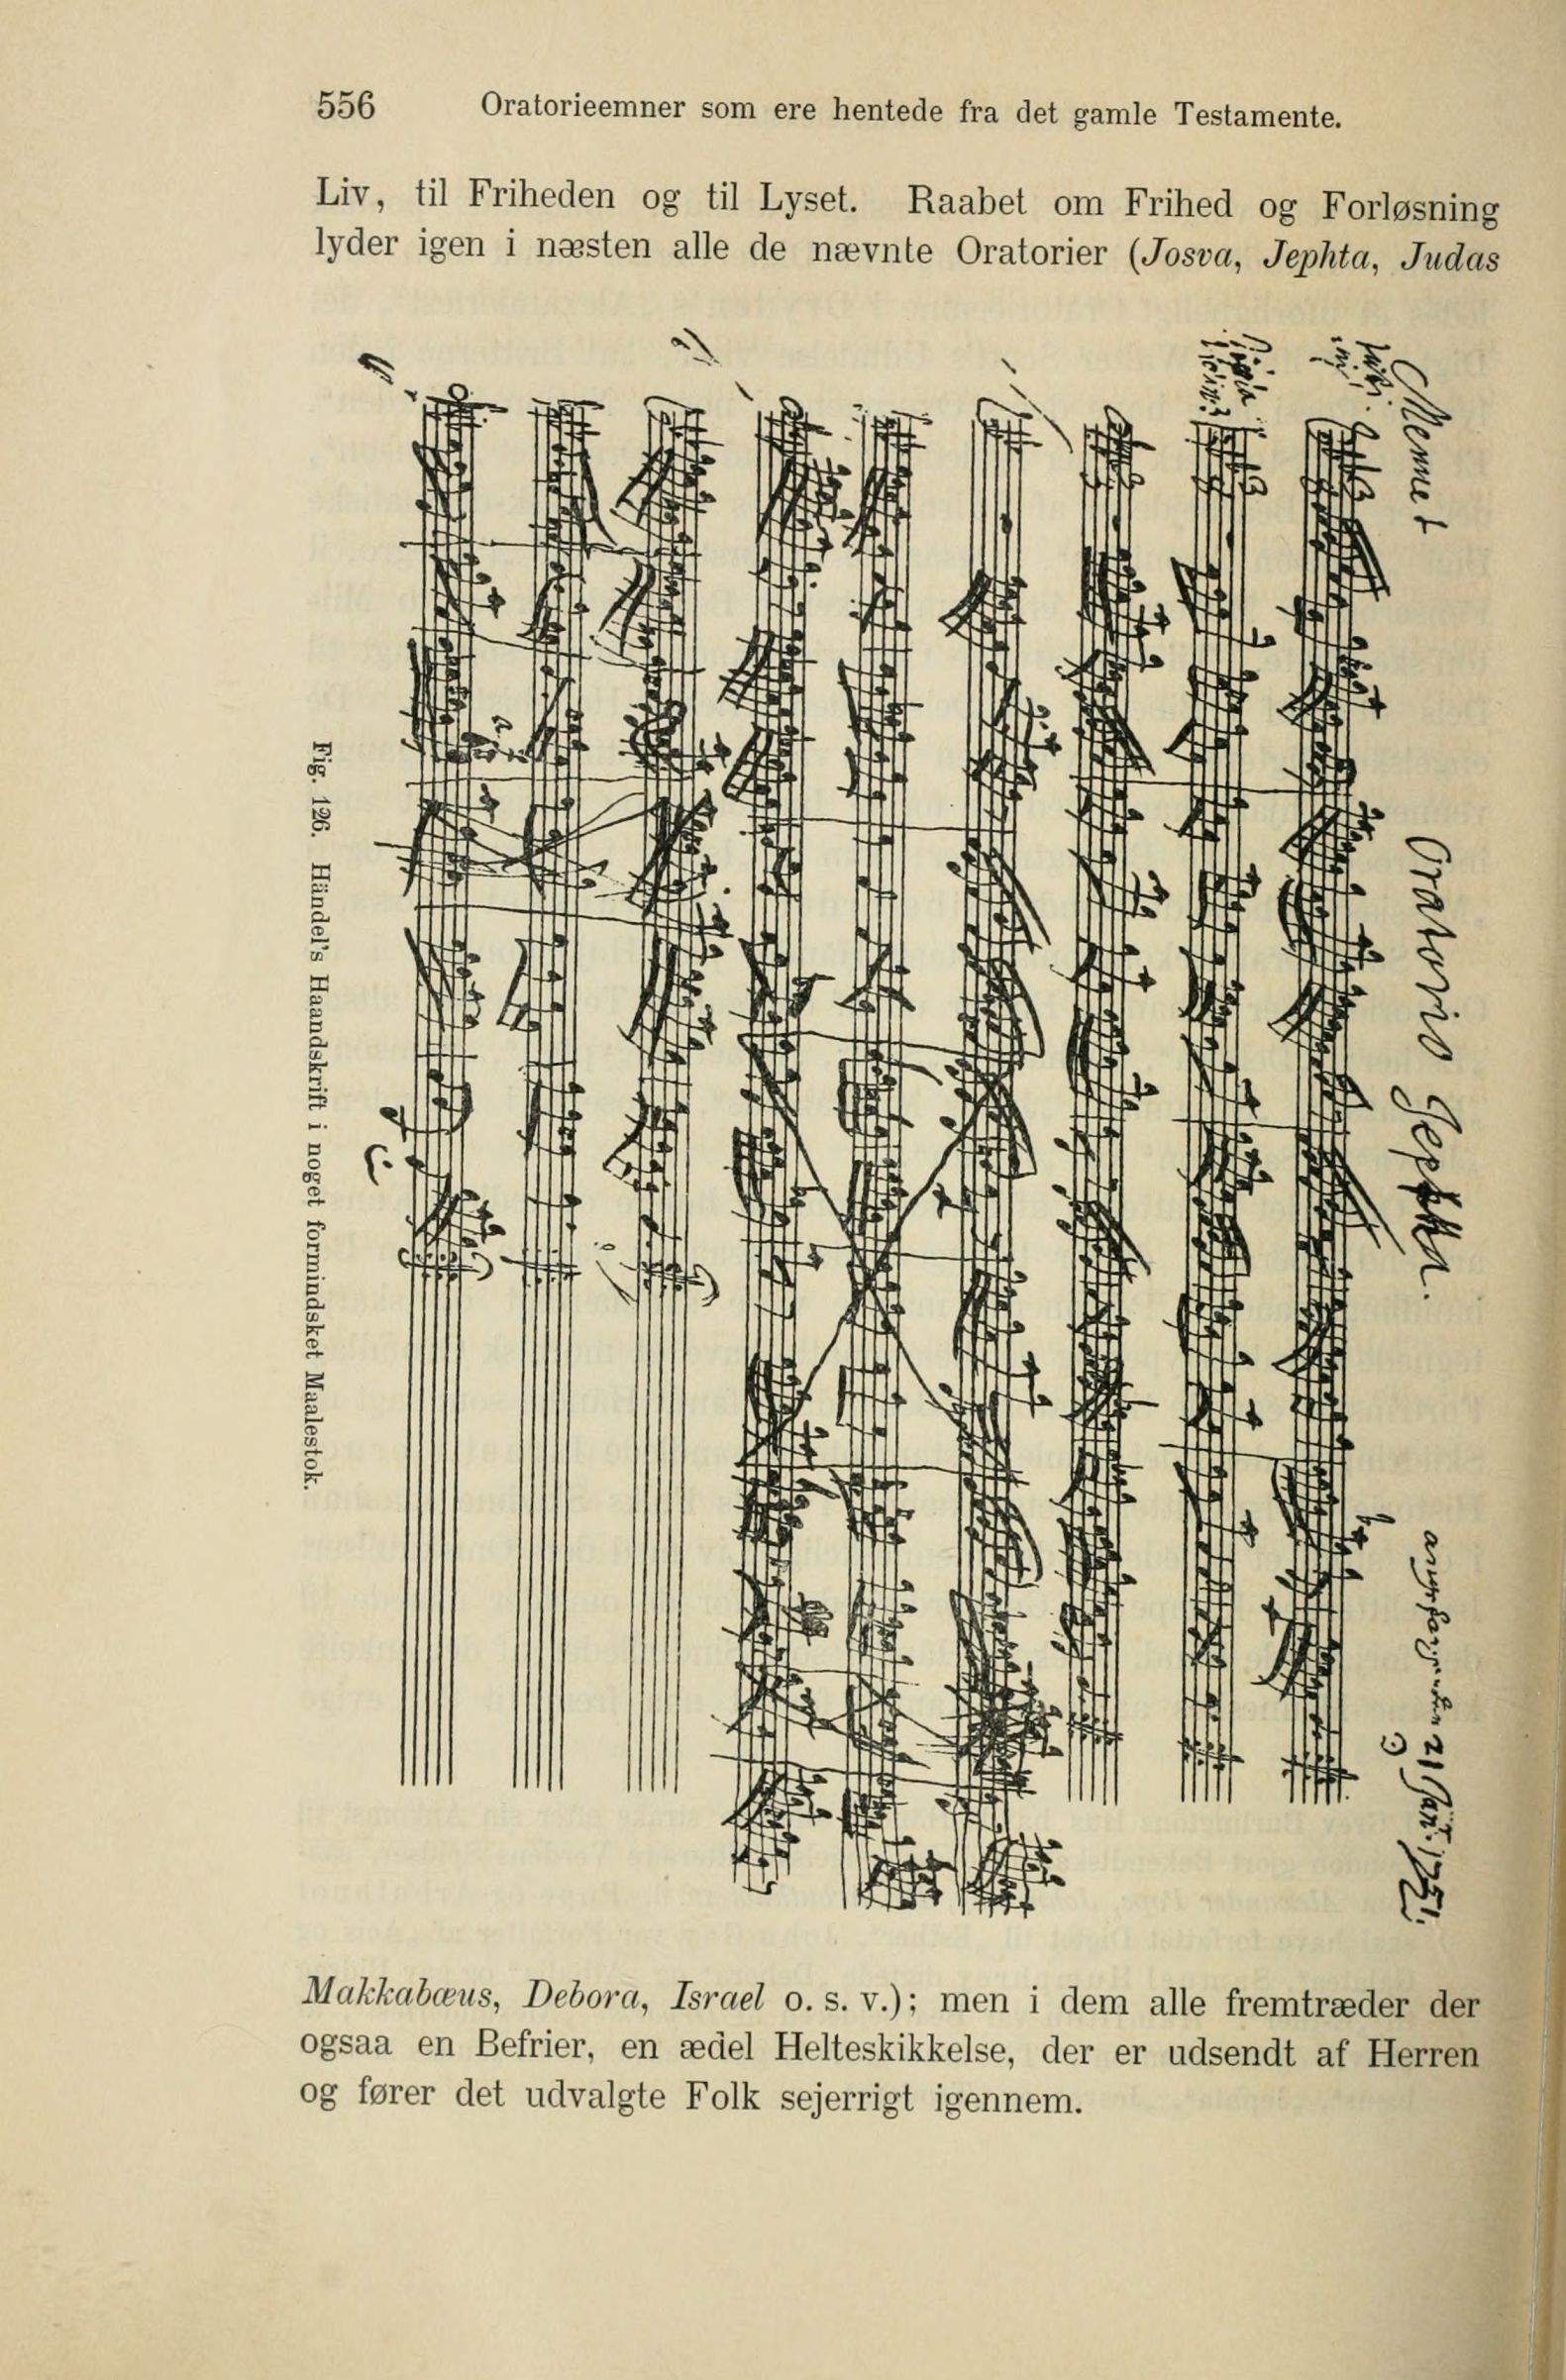 556 Oratorieemner som ere hentede fra det gamle Testamente.
Liv, til Friheden og til Lyset. Raabet om Frihed og Forløsning
lyder igen i næsten alle de nævnte Oratorier (Josva, Jephta, Judas
Menuet Oratorio Jephta. angefangen den 21 Jan. 1751.
Fig. 126. Händel's Haandskrift i noget formindsket Maalestok.
Makkabæus, Debora, Israel o. s. v.); men i dem alle fremtræder der
ogsaa en Befrier, en ædel Helteskikkelse, der er udsendt af Herren
og fører det udvalgte Folk sejerrigt igennem.